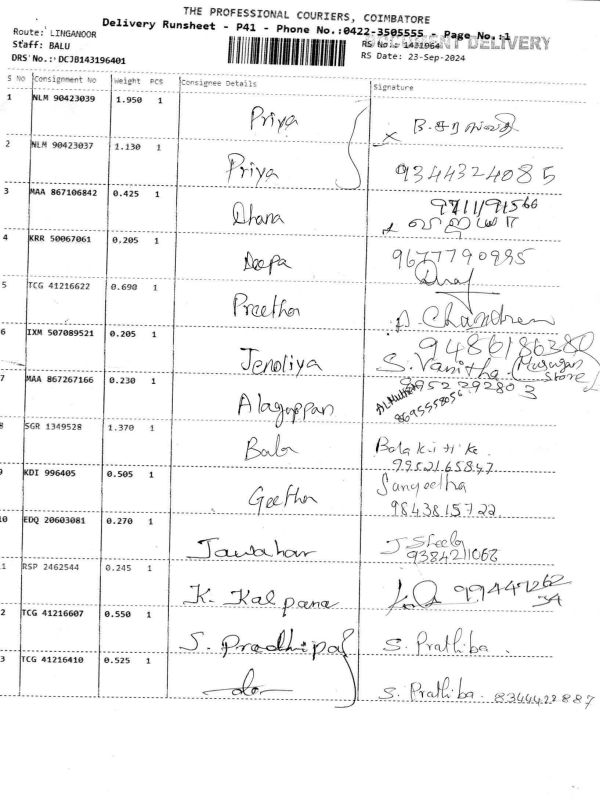 THE PROFESSIONAL COURIERS, COIMBATORE
Delivery Runsheet - P41 - Phone No.:0422-3505555 - Page No.:1
DOCUMENT DELIVERY
Route: LINGANOOR
Staff: BALU
DRS No.: DCJB143196401
RS No.: 1431964
RS Date: 23-Sep-2024
S No Consignment No Weight PCS Consignee Details Signature
1 NLM 90423039 1.950 1 Priya B. சரஸ்வதி
2 NLM 90423037 1.130 1 Priya 9344324085
3 MAA 867106842 0.425 1 Dhana 9711191566
4 KRR 50067061 0.205 1 Deepa 9677790995
5 TCG 41216622 0.690 1 Preetha A. Chandren
9486186380
6 IXM 507089521 0.205 1 Jenoliya S. Vanitha (Murugan Store)
9952292803
7 MAA 867267166 0.230 1 Alagappan 8695558056
8 SGR 1349528 1.370 1 Babu
9952165847
9 KDI 996405 0.505 1 Geetha Sangeetha
9843815722
10 EDQ 20603081 0.270 1 Jawahar J Sheela
9384211068
1 RSP 2462544 0.245 1 K. Kalpana
2 TCG 41216607 0.550 1 S. Pradhipa S. Prathiba.
3 TCG 41216410 0.525 1 -do- S. Prathiba. 8344422887